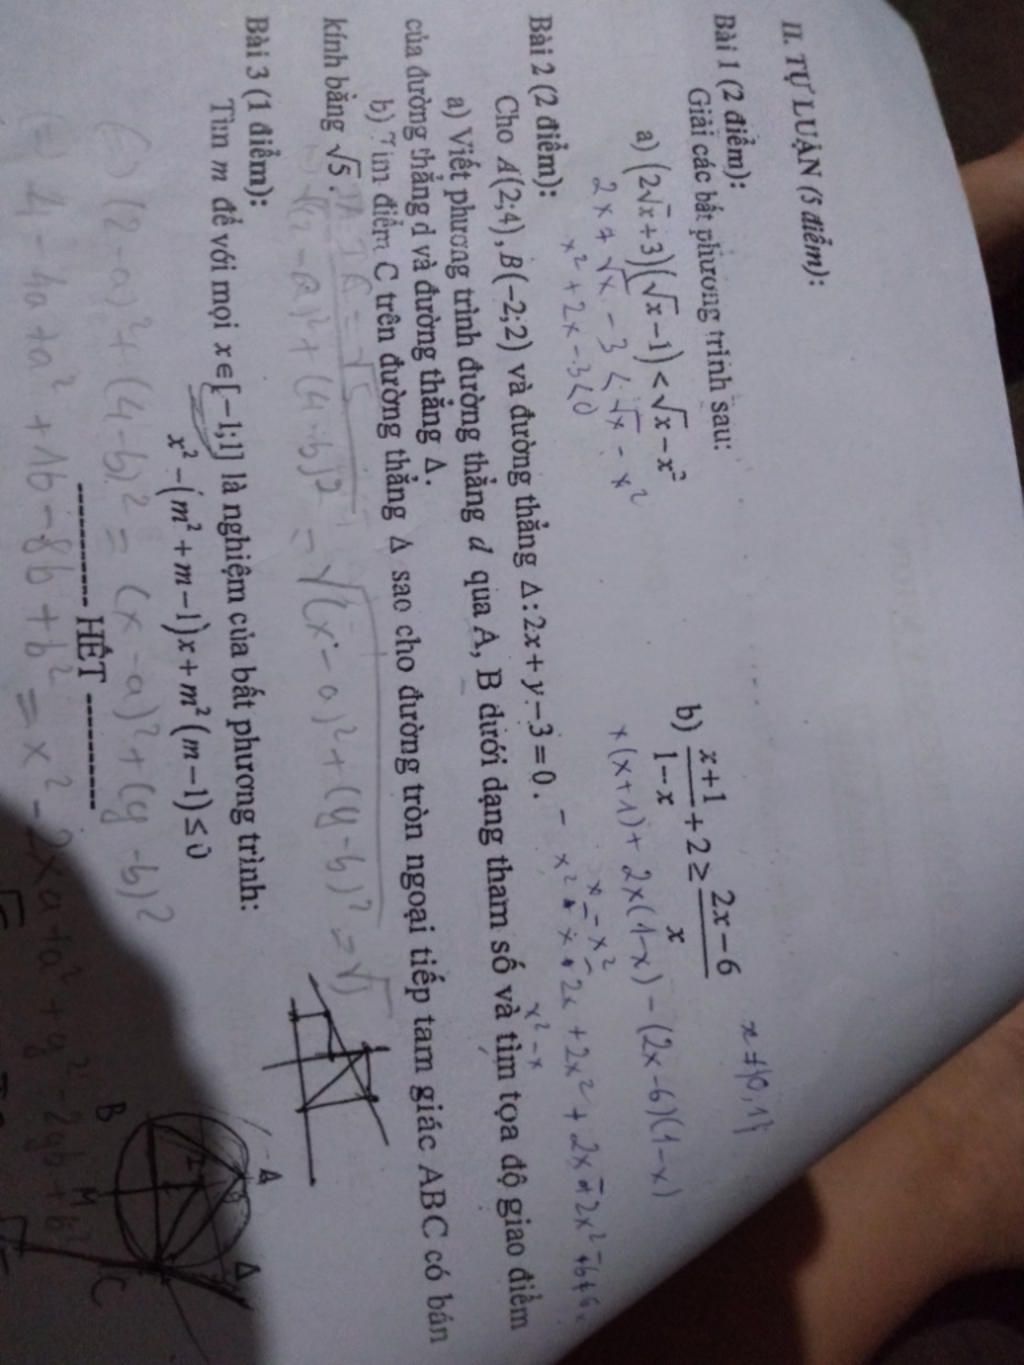 II. TỰ LUẬN (5 điểm):
Bài 1 (2 điểm):
Giải các bất phương trình sau:
x ≠ {0, 1}
a) (2√x+3)(√x−1) < √x − x²
b) (x+1)/(1−x) + 2 ≥ (2x−6)/x
2x + √x − 3 < √x − x²
x(x+1) + 2x(1−x) − (2x−6)(1−x)
x² + 2x − 3 < 0
x² − x
Bài 2 (2 điểm):
Cho A(2;4), B(−2;2) và đường thẳng Δ: 2x + y − 3 = 0.
a) Viết phương trình đường thẳng d qua A, B dưới dạng tham số và tìm tọa độ giao điểm
của đường thẳng d và đường thẳng Δ.
b) Tìm điểm C trên đường thẳng Δ sao cho đường tròn ngoại tiếp tam giác ABC có bán
kính bằng √5.
= √5
(4−b)² = √(x−a)²+(y−b)² = √5
Bài 3 (1 điểm):
Tìm m để với mọi x∈[−1;1] là nghiệm của bất phương trình:
x² − (m² + m − 1)x + m²(m − 1) ≤ 0
(2−a)² + (4−b)² = (x−a)² + (y−b)²
---------- HẾT ----------
4 − 4a + a² + 16 − 8b + b² = x² − 2xa + a² + y² − 2yb + b²
A
Δ
I
B
M
C